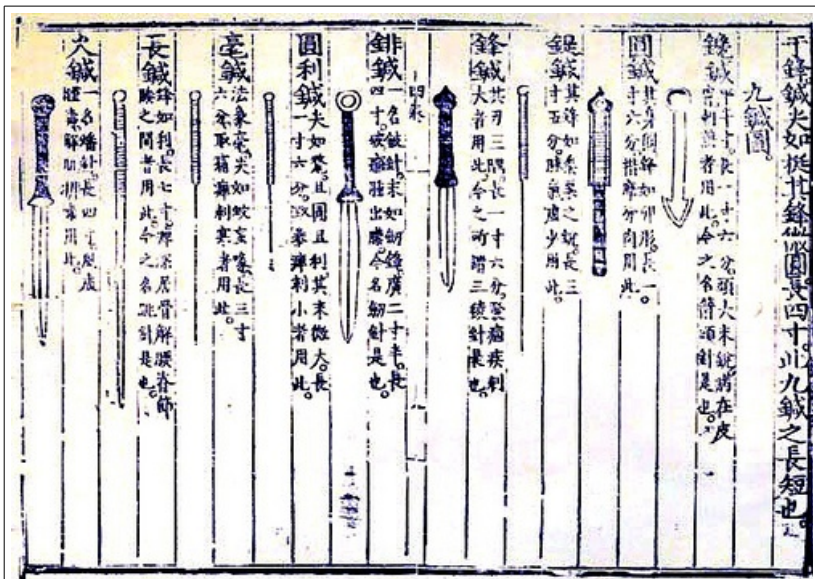 于鋒鍼尖如挺其鋒微圓長四寸此九鍼之長短也。
九鍼圖。
鑱鍼平半寸長一寸六分頭大末銳病在皮
膚刺熱者用此。今之名箭頭針是也。
圓鍼其身圓鋒如卵形長一
寸六分揩摩分肉用此。
鍉鍼其鋒如黍粟之銳長三
寸五分。脉氣虛少用此。
鋒鍼其刃三隅。長一寸六分。發痼疾刺
大者用此。今之所謂三稜針是也。
錍鍼一名鈹針。末如劒鋒。廣二寸半。長
四寸。破癰腫出膿。今名劒針是也。
圓利鍼尖如氂。且圓且利。其末微大。長
一寸六分。取暴痺刺小者用此。
毫鍼法象毫。尖如蚊虻喙。長三寸
六分取痛痺刺寒者用此。
長鍼鋒如利。長七寸。痺深居骨解腰脊節
腠之間者用此。今之名跳針是也。
火鍼一名燔針。長四寸。風虛
腫毒。解肌排毒用此。